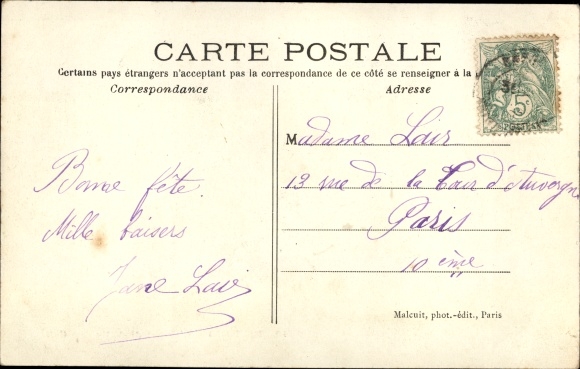 CARTE POSTALE
Certains pays étrangers n'acceptant pas la correspondance de ce côté se renseigner à la
Correspondance
Adresse
Madame Lair
13 rue de la Tour d'Auvergne
Paris
10 ème
Bonne fête.
Mille baisers
Jane Lair
5c
Malcuit, phot.-édit., Paris